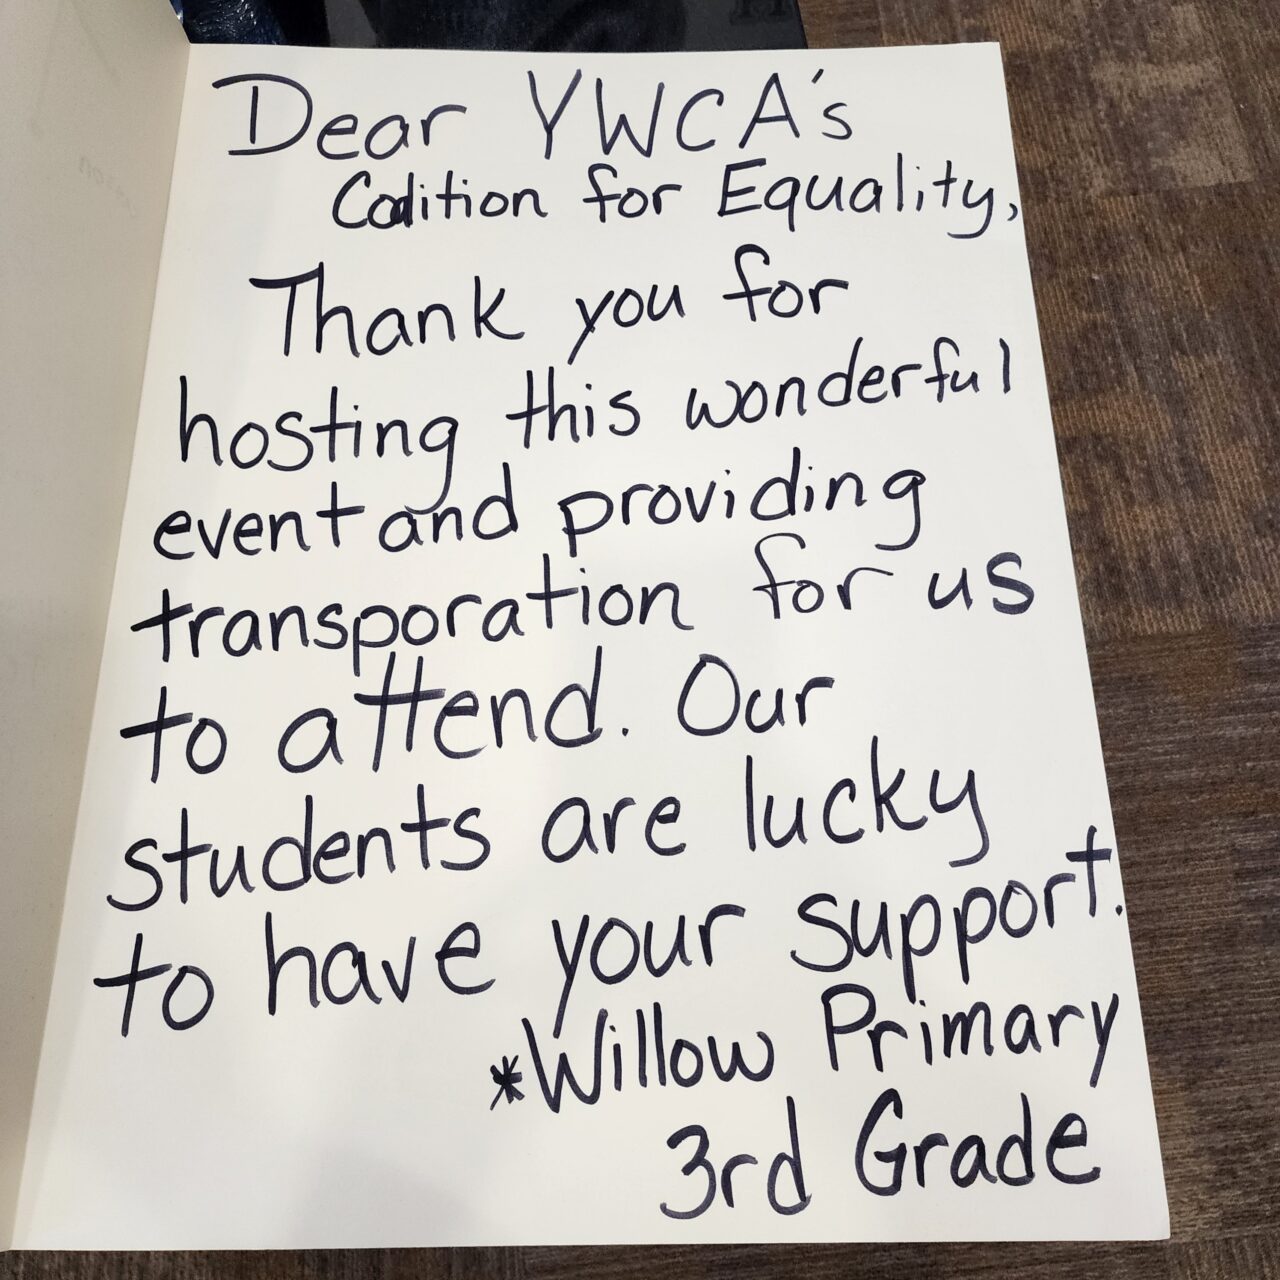 Dear YWCA's
Coalition for Equality,
Thank you for
hosting this wonderful
event and providing
transporation for us
to attend. Our
students are lucky
to have your support.
*Willow Primary
3rd Grade